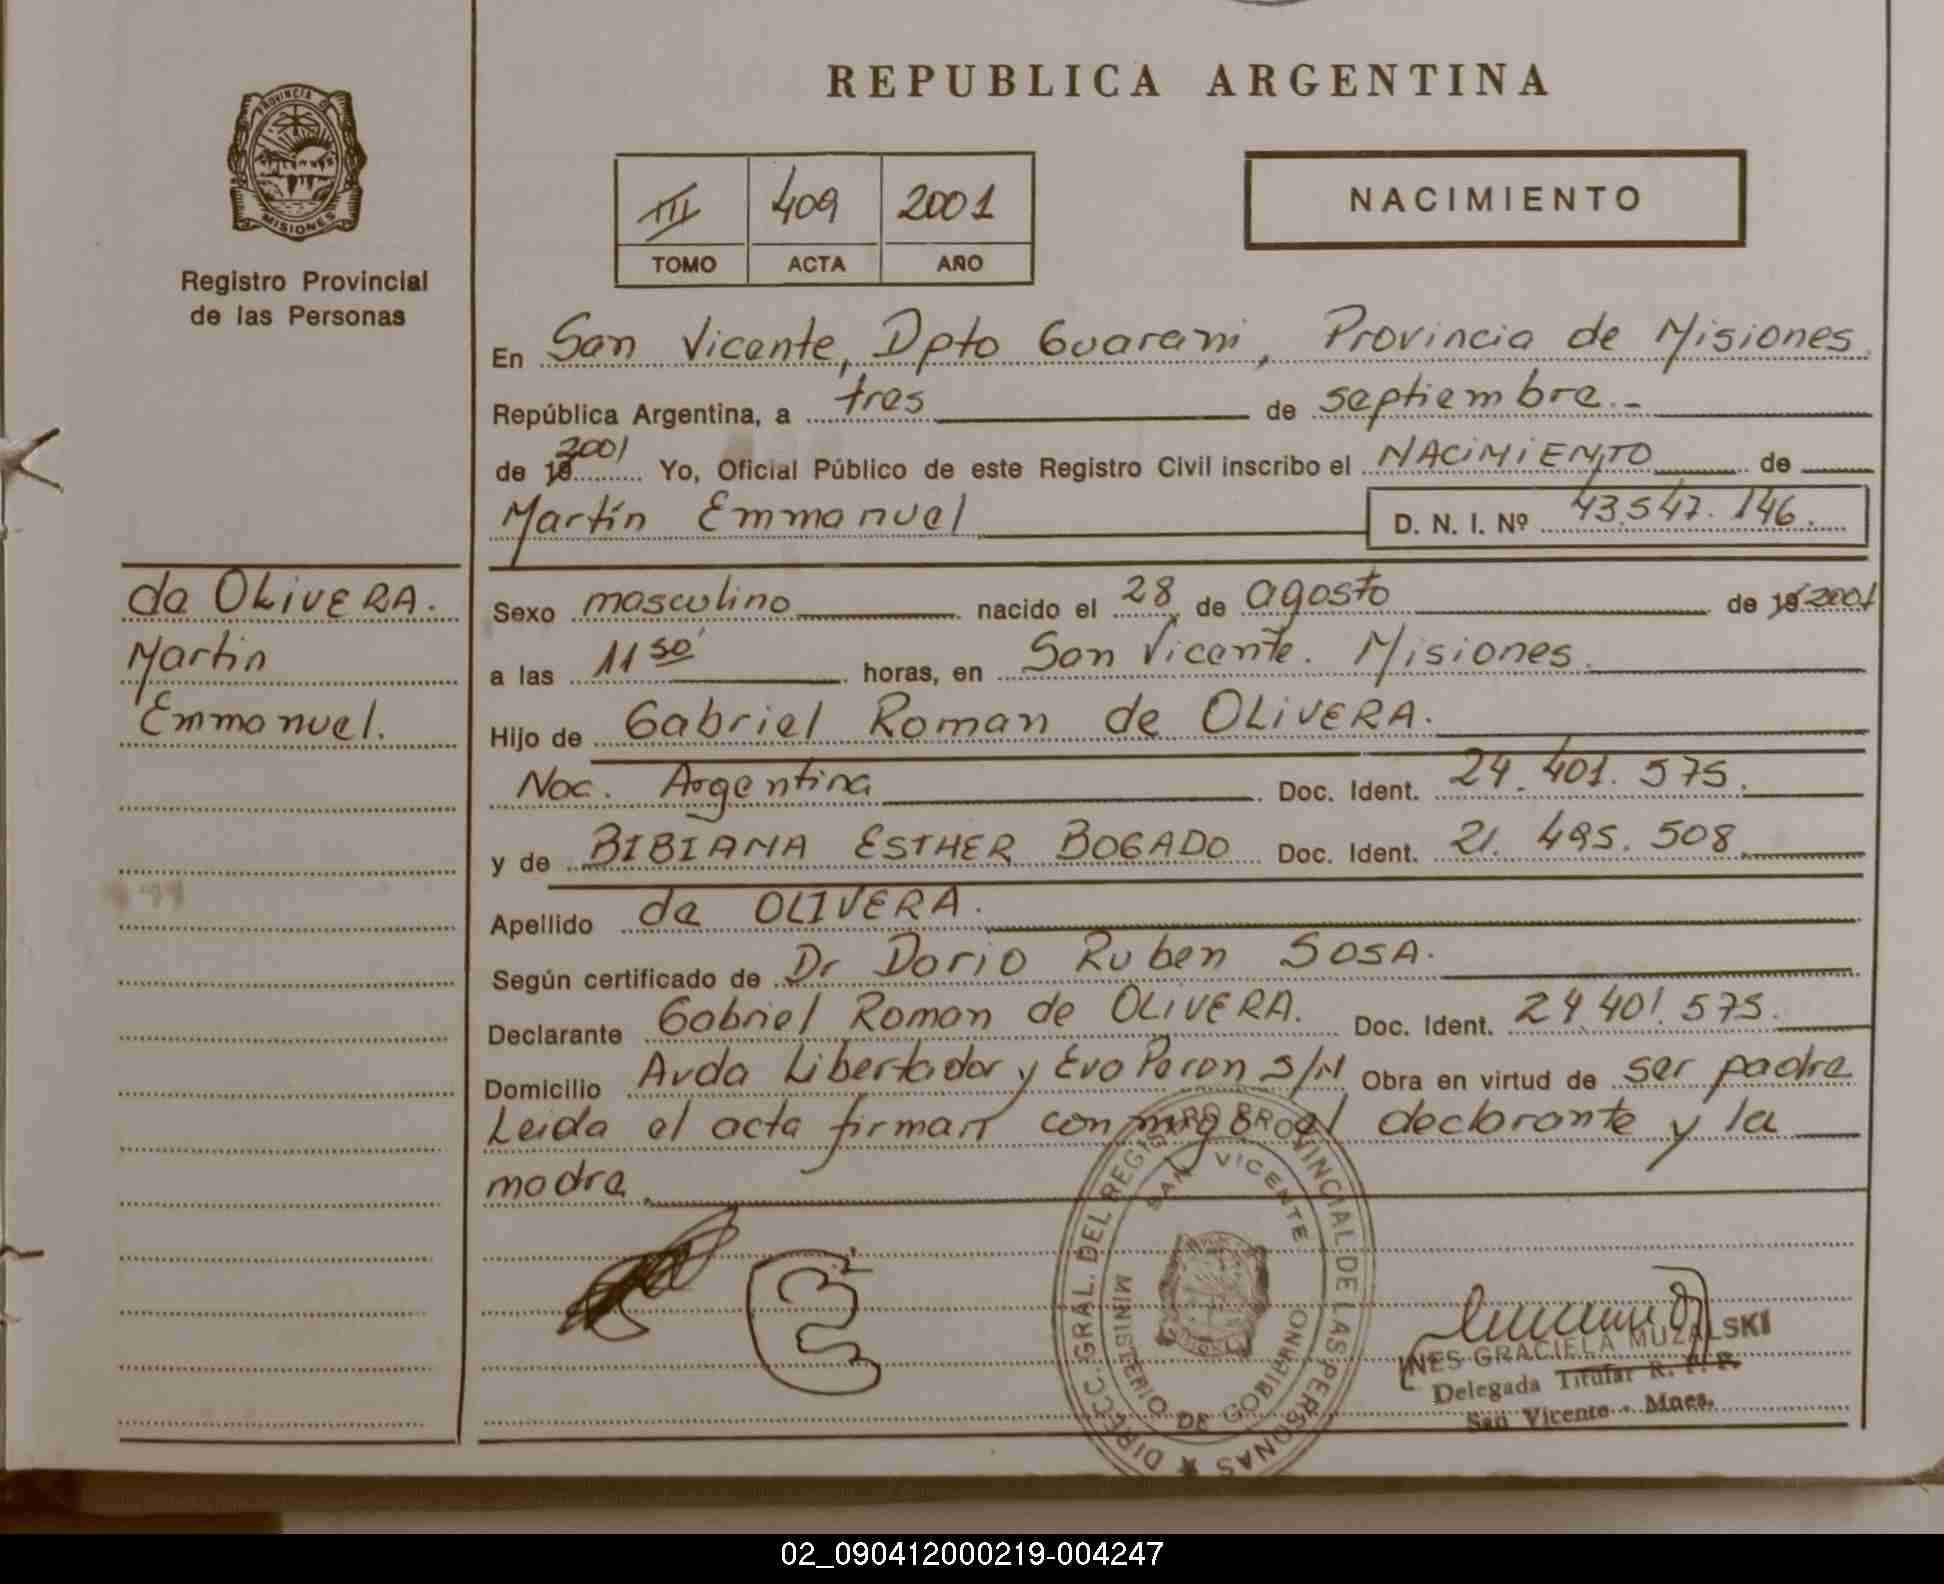 REPUBLICA ARGENTINA
PROVINCIA D
MISIONES
Registro Provincial
de las Personas
III 409 2001
TOMO ACTA AÑO
NACIMIENTO
En San Vicente, Dpto Guarani, Provincia de Misiones
República Argentina, a tres de septiembre.-
de 19 2001 Yo, Oficial Público de este Registro Civil inscribo el NACIMIENTO de
Martín Emmanuel D. N. I. Nº 43.547.146.
da OLIVERA.
Martin
Emmanuel.
Sexo masculino nacido el 28 de agosto de 19 2001
a las 11 50' horas, en San Vicente. Misiones.
Hijo de Gabriel Roman de OLIVERA.
Nac. Argentina Doc. Ident. 24.401.575.
y de BIBIANA ESTHER BOGADO Doc. Ident. 21.495.508.
Apellido da OLIVERA.
Según certificado de Dr Dario Ruben SOSA.
Declarante Gabriel Roman de OLIVERA. Doc. Ident. 24.401.575.
Domicilio Avda Libertador y Eva Peron s/N Obra en virtud de ser padre
Leida el acta firman conmigo el declarante y la
madre.
DIRECC. GRAL. DEL REGISTRO PROVINCIAL DE LAS PERSONAS
SAN VICENTE
MINISTERIO DE GOBIERNO
INES GRACIELA MUZALSKI
Delegada Titular R. P. P.
San Vicente - Mnes.
02_090412000219-004247